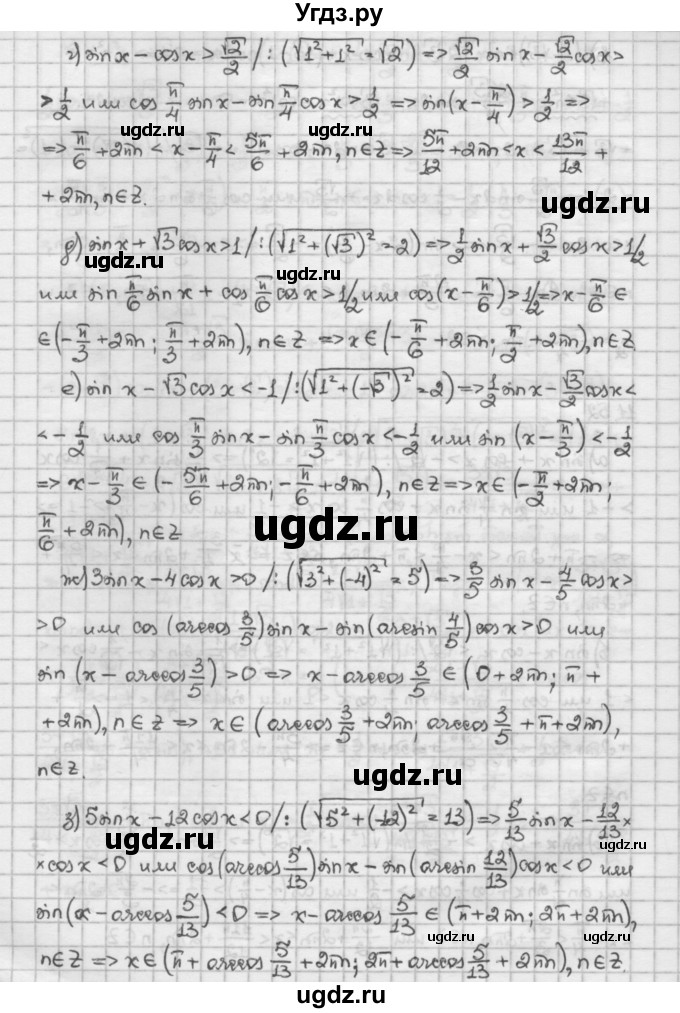 Угдз.ру
г) sin x − cos x > √2/2 /: (√(1²+1²) = √2) => √2/2 sin x − √2/2 cos x >
> 1/2 или cos π/4 sin x − sin π/4 cos x > 1/2 => sin(x − π/4) > 1/2 =>
ugdz.ru ugdz.ru
=> π/6 + 2πn < x − π/4 < 5π/6 + 2πn, n∈Z => 5π/12 + 2πn < x < 13π/12 +
+ 2πn, n∈Z.
ugdz.ru
д) sin x + √3 cos x > 1 /: (√(1²+(√3)²) = 2) => 1/2 sin x + √3/2 cos x > 1/2
ugdz.ru
или sin π/6 sin x + cos π/6 cos x > 1/2 или cos(x − π/6) > 1/2 => x − π/6 ∈
∈ (−π/3 + 2πn; π/3 + 2πn), n∈Z => x ∈ (−π/6 + 2πn; π/2 + 2πn), n∈Z
ugdz.ru
е) sin x − √3 cos x < −1 /: (√(1²+(−√3)²) = 2) => 1/2 sin x − √3/2 cos x <
< −1/2 или cos π/3 sin x − sin π/3 cos x < −1/2 или sin (x − π/3) < −1/2
=> x − π/3 ∈ (−5π/6 + 2πn; −π/6 + 2πn), n∈Z => x ∈ (−π/2 + 2πn;
π/6 + 2πn), n∈Z
ugdz.ru
ж) 3 sin x − 4 cos x > 0 /: (√(3²+(−4)²) = 5) => 3/5 sin x − 4/5 cos x >
ugdz.ru
> 0 или cos (arccos 3/5) sin x − sin (arcsin 4/5) cos x > 0 или
sin (x − arccos 3/5) > 0 => x − arccos 3/5 ∈ (0 + 2πn; π +
+ 2πn), n∈Z => x ∈ (arccos 3/5 + 2πn; arccos 3/5 + π + 2πn),
ugdz.ru
n∈Z.
ugdz.ru
з) 5 sin x − 12 cos x < 0 /: (√(5²+(−12)²) = 13) => 5/13 sin x − 12/13 ×
ugdz.ru
× cos x < 0 или cos (arccos 5/13) sin x − sin (arcsin 12/13) cos x < 0 или
sin (x − arccos 5/13) < 0 => x − arccos 5/13 ∈ (π + 2πn; 2π + 2πn),
ugdz.ru ugdz.ru
n∈Z => x ∈ (π + arccos 5/13 + 2πn; 2π + arccos 5/13 + 2πn), n∈Z.
ugdz.ru